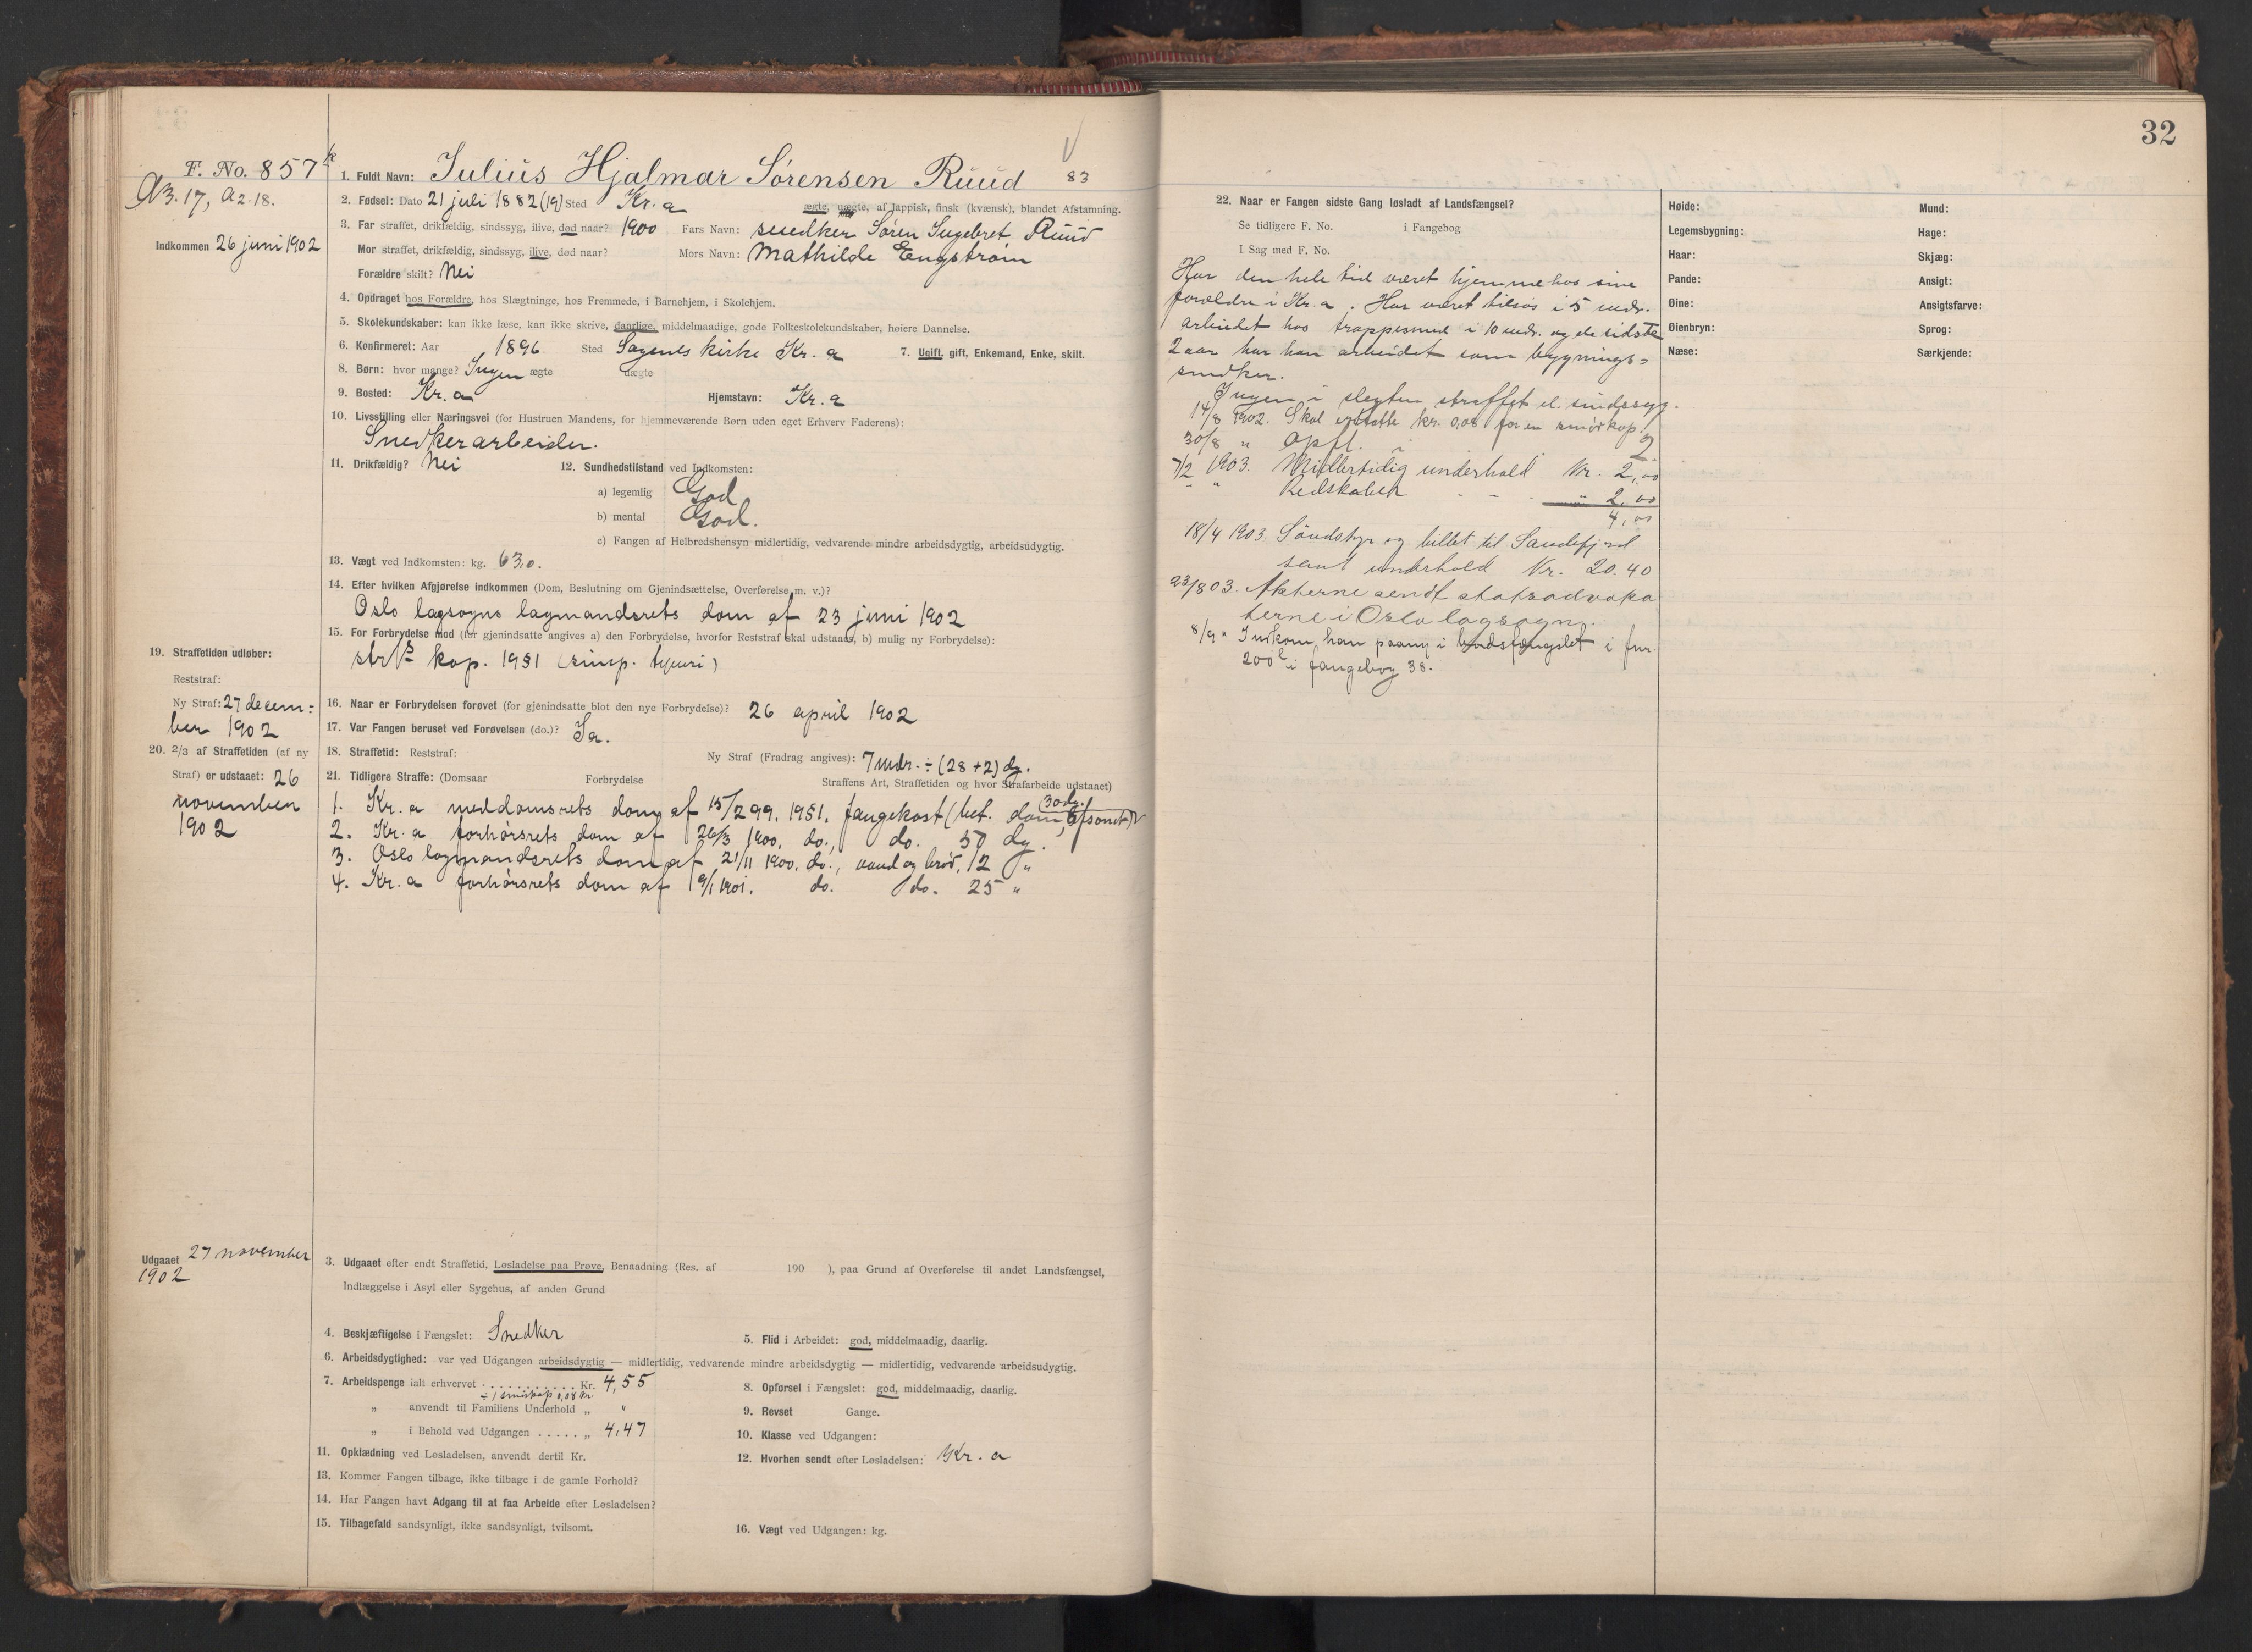 32
F. No. 857
A3. 17, A2. 18.
Indkommen 26 juni 1902
1. Fuldt Navn: Julius Hjalmar Sørensen Ruud 83
2. Fødsel: Dato 21 juli 1882 (19) Sted Kr.a ægte, uægte, af lappisk, finsk (kvænsk), blandet Afstamning.
3. Far straffet, drikfældig, sindssyg, ilive, død naar? 1900 Fars Navn: snedker Søren Ingebret. Ruud
Mor straffet, drikfældig, sindssyg, ilive, død naar? Mors Navn: Mathilde Engstrøm
Forældre skilt? Nei
4. Opdraget hos Forældre, hos Slægtninge, hos Fremmede, i Barnehjem, i Skolehjem.
5. Skolekundskaber: kan ikke læse, kan ikke skrive, daarlige, middelmaadige, gode Folkeskolekundskaber, høiere Dannelse.
6. Konfirmeret: Aar 1896 Sted Sagenes kirke Kr. a 7. Ugift, gift, Enkemand, Enke, skilt.
8. Børn: hvor mange? Ingen ægte uægte
9. Bosted: Kr. a Hjemstavn: Kr. a
10. Livsstilling eller Næringsvei (for Hustruen Mandens, for hjemmeværende Børn uden eget Erhverv Faderens):
Snedkerarbeider.
11. Drikfældig? Nei 12. Sundhedstilstand ved Indkomsten:
a) legemlig God
b) mental God.
c) Fangen af Helbredshensyn midlertidig, vedvarende mindre arbeidsdygtig, arbeidsudygtig.
13. Vægt ved Indkomsten: kg. 63,0.
14. Efter hvilken Afgjørelse indkommen (Dom, Beslutning om Gjenindsættelse, Overførelse m. v.)?
Oslo lagsogns lagmandsrets dom af 23 juni 1902
15. For Forbrydelse mod (for gjenindsatte angives a) den Forbrydelse, hvorfor Reststraf skal udstaaes, b) mulig ny Forbrydelse):
kap. 1951 (simp. tyveri)
19. Straffetiden udløber:
Reststraf:
Ny Straf: 27 decem-
ber 1902
16. Naar er Forbrydelsen forøvet (for gjenindsatte blot den nye Forbrydelse)? 26 april 1902
17. Var Fangen beruset ved Forøvelsen (do.)? Ja.
20. 2/3 af Straffetiden (af ny
Straf) er udstaaet: 26
november
1902
18. Straffetid: Reststraf: Ny Straf (Fradrag angives): 7 mdr. ÷ (28 + 2) dg.
21. Tidligere Straffe: (Domsaar Forbrydelse Straffens Art, Straffetiden og hvor Strafarbeide udstaaet)
1. Kr. a meddomsrets dom af 15/2 99. 1951. fangekost (bet. dom, afsonet) 30 dg.
2. Kr. a forhørsrets dom af 26/3 1900. do., do. 50 dg.
3. Oslo lagmandsrets dom af 21/11 1900. do., vand og brød, 12 "
4. Kr. a forhørsrets dom af 9/1 1901. do. do. 25 "
Udgaaet 27 november
1902
3. Udgaaet efter endt Straffetid, Løsladelse paa Prøve, Benaadning (Res. af 190 ), paa Grund af Overførelse til andet Landsfængsel,
Indlæggelse i Asyl eller Sygehus, af anden Grund
4. Beskjæftigelse i Fængslet: Snedker 5. Flid i Arbeidet: god, middelmaadig, daarlig.
6. Arbeidsdygtighed: var ved Udgangen arbeidsdygtig — midlertidig, vedvarende mindre arbeidsdygtig — midlertidig, vedvarende arbeidsudygtig.
7. Arbeidspenge ialt erhvervet . . . . . . . . . . . Kr. 4,55 8. Opførsel i Fængslet: god, middelmaadig, daarlig.
÷ 1 smørkop 0,08 kr.
" anvendt til Familiens Underhold " " 9. Revset Gange.
" i Behold ved Udgangen . . . . . " 4,47 10. Klasse ved Udgangen:
11. Opklædning ved Løsladelsen, anvendt dertil Kr. 12. Hvorhen sendt efter Løsladelsen: Kr. a
13. Kommer Fangen tilbage, ikke tilbage i de gamle Forhold?
14. Har Fangen havt Adgang til at faa Arbeide efter Løsladelsen?
15. Tilbagefald sandsynligt, ikke sandsynligt, tvilsomt. 16. Vægt ved Udgangen: kg.
22. Naar er Fangen sidste Gang løsladt af Landsfængsel?
Se tidligere F. No. i Fangebog
I Sag med F. No.
Har den hele tid været hjemme hos sine
forældre i Kr. a. Har været tilsøs i 5 mdr.
arbeidet hos trappesned i 10 mdr. og de sidste
2 aar har han arbeidet som bygnings-
snedker.
Ingen i slegten straffet el. sindssyg.
14/8 1902. Skal erstatte kr. 0,08 for en smørkop.
30/8 " Opfl. i 2
7/2 1903. Midlertidig underhold Kr. 2,00
" " Redskaber - - - " 2,00
4,00
18/4 1903. Søudstyr og billet til Sandefjord
samt underhold Kr. 20.40
23/8 03. Akterne sendt statsadvoka
terne i Oslo lagsogn.
8/9 " Indkom han paany i bodsfængslet i fnr.
200 i fangebog 38.
Høide:
Legemsbygning:
Haar:
Pande:
Øine:
Øienbryn:
Næse:
Mund:
Hage:
Skjæg:
Ansigt:
Ansigtsfarve:
Sprog:
Særkjende: